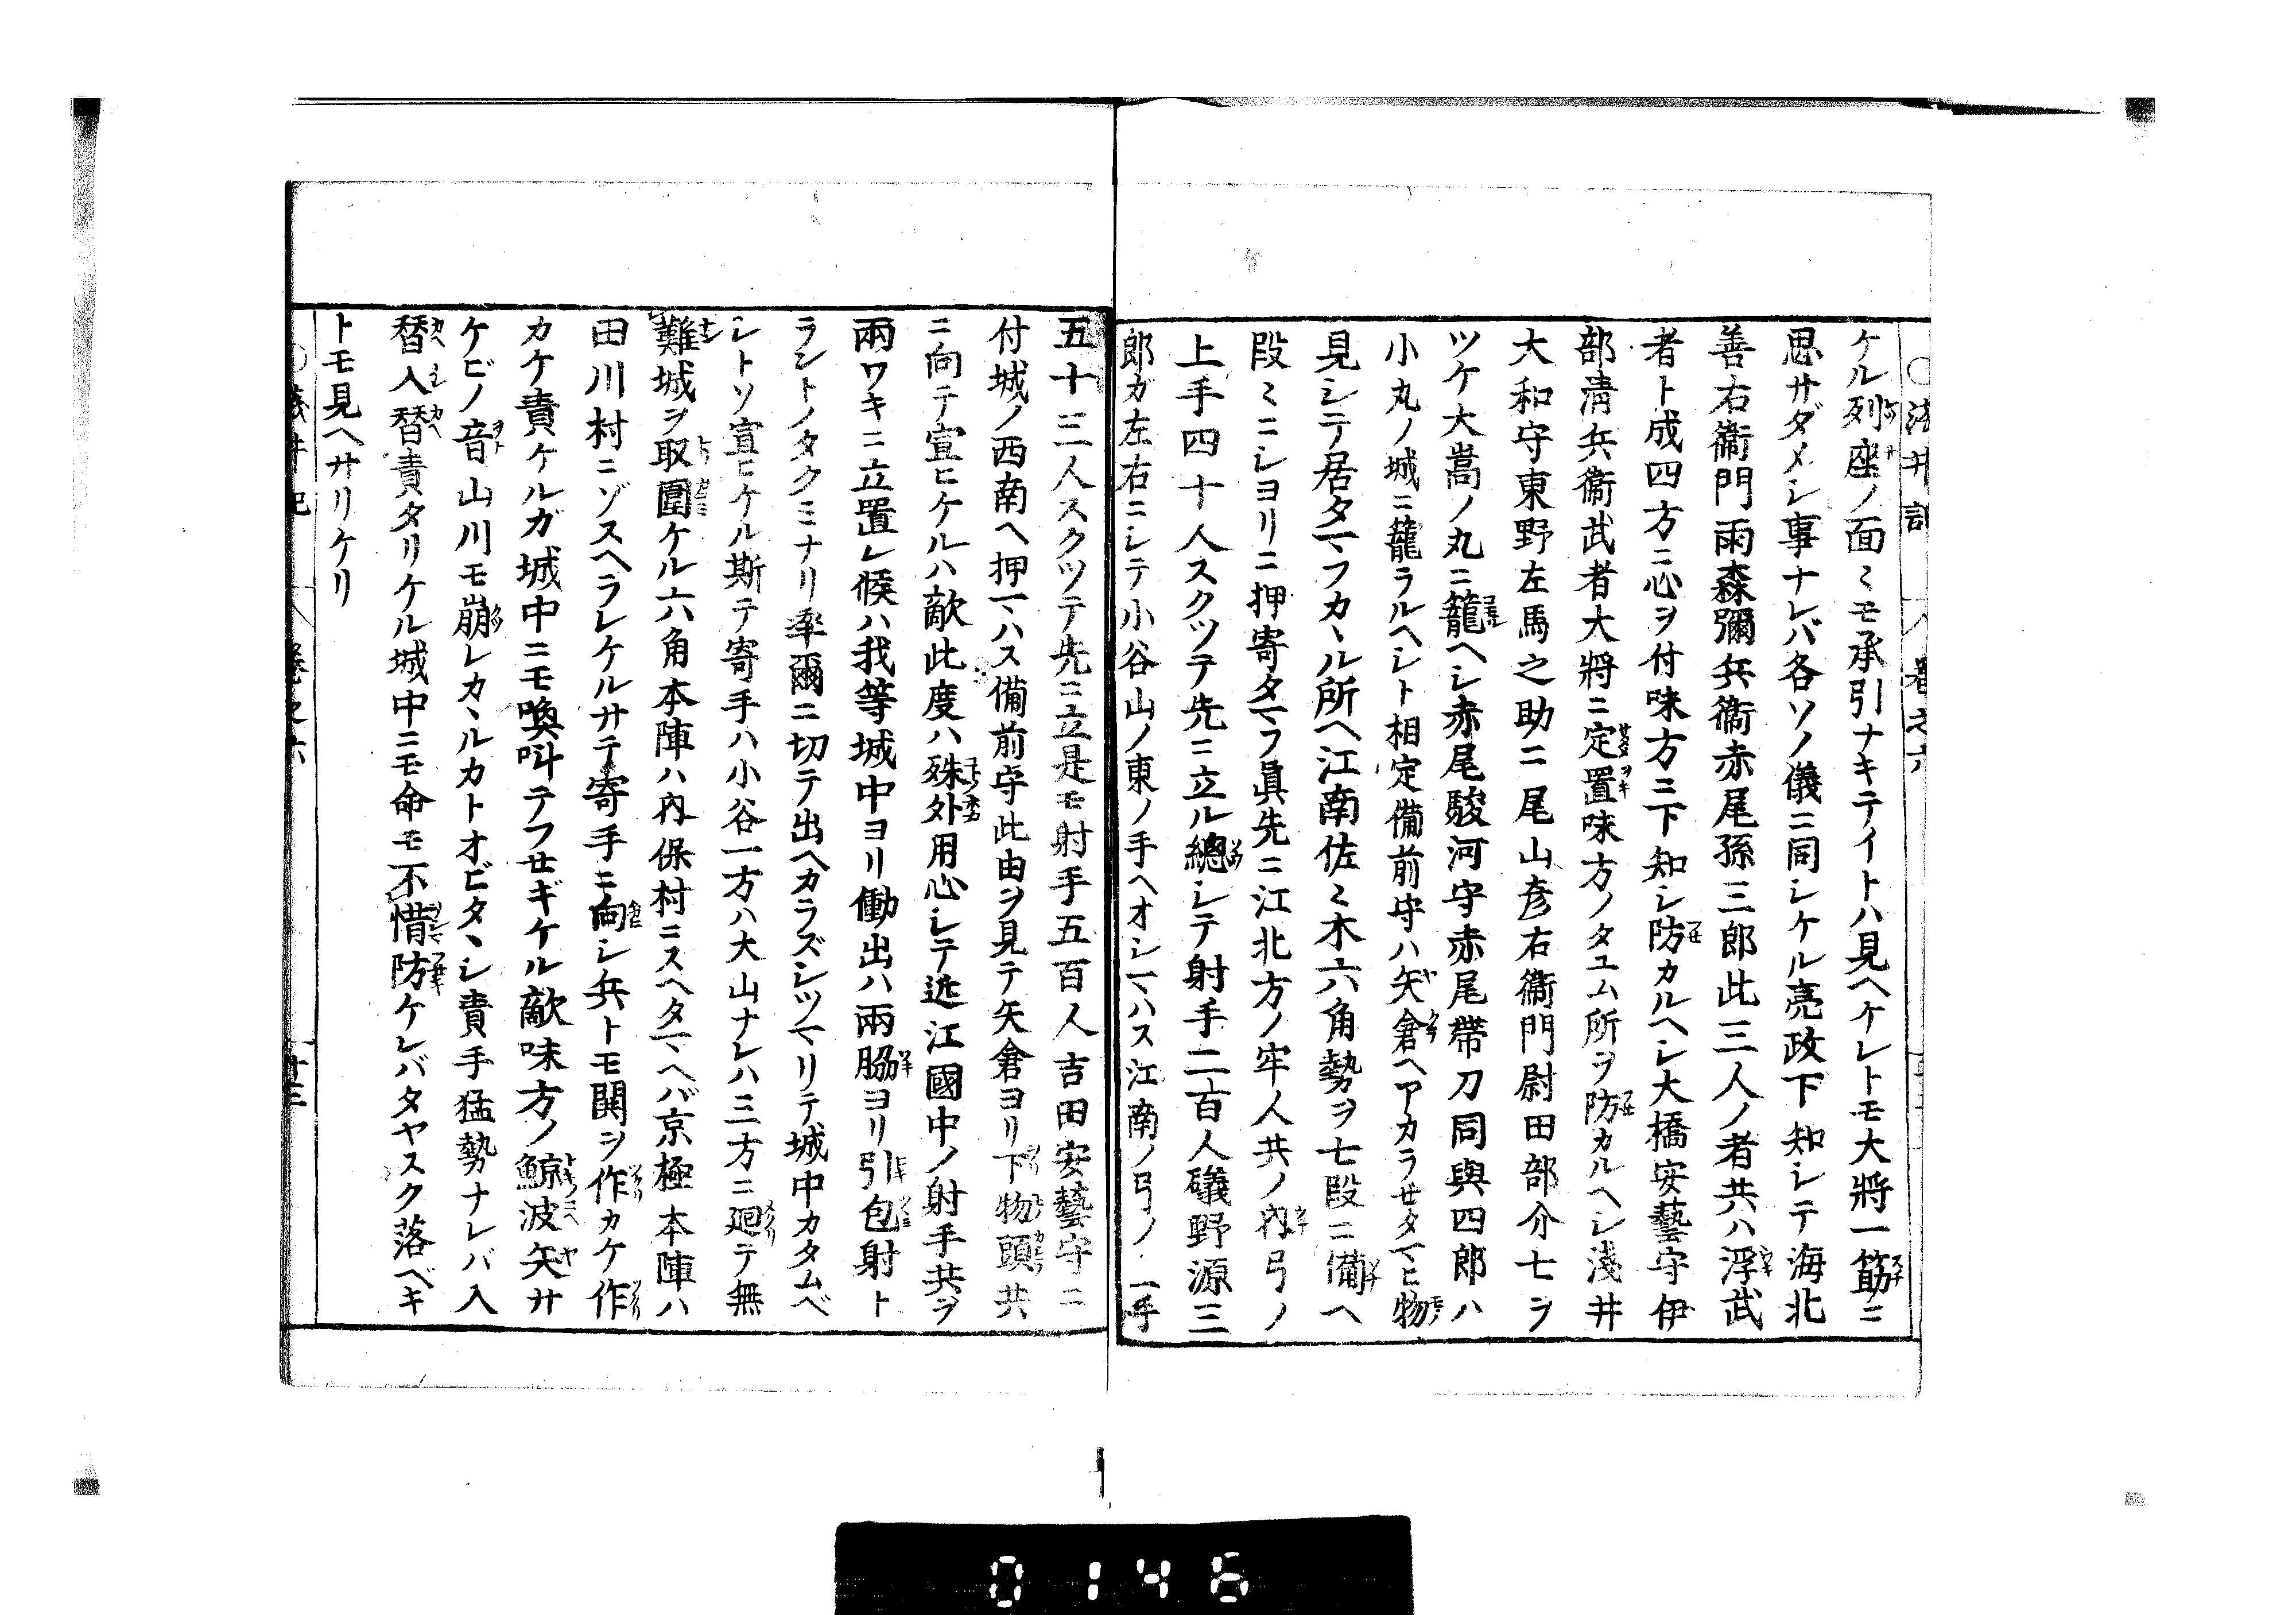 ケル列座ノ面〻モ承引ナキテイトハ見ヘケレトモ大將一筋ニ
思サダメシ事ナレバ各ソノ儀ニ同シケル亮政下知シテ海北
善右衞門雨森彌兵衞赤尾孫三郎此三人ノ者共ハ浮武
者ト成四方ニ心ヲ付味方ニ下知シ防カルヘシ大橋安藝守伊
部淸兵衞武者大將ニ定置味方ノタユム所ヲ防カルヘシ淺井
大和守東野左馬之助ニ尾山彦右衞門尉田部介七ヲ
ツケ大嵩ノ丸ニ籠ヘシ赤尾駿河守赤尾帶刀同與四郎ハ
小丸ノ城ニ籠ラルヘシト相定備前守ハ矢倉ヘアカラセタマヒ物
見シテ居タマフカヽル所ヘ江南佐〻木六角勢ヲ七段ニ備ヘ
段〻ニシヨリニ押寄タマフ眞先ニ江北方ノ牢人共ノ內弓ノ
上手四十人スクツテ先ニ立ル總シテ射手二百人礒野源三
郎ガ左右ニシテ小谷山ノ東ノ手ヘオシマハス江南ノ弓ノ一手
五十三人スクツテ先ニ立是モ射手五百人吉田安藝守ニ
付城ノ西南ヘ押マハス備前守此由ヲ見テ矢倉ヨリ下物頭共
ニ向テ宣ヒケルハ敵此度ハ殊外用心シテ近江國中ノ射手共ヲ
兩ワキニ立置レ候ハ我等城中ヨリ働出ハ兩脇ヨリ引包射ト
ラントノタクミナリ率爾ニ切テ出ヘカラズシツマリテ城中カタムベ
シトソ宣ヒケル斯テ寄手ハ小谷一方ハ大山ナレハ三方ニ廻テ無
難城ヲ取圍ケル六角本陣ハ內保村ニスヘタマヘバ京極本陣ハ
田川村ニゾスヘラレケルサテ寄手ニ向シ兵トモ鬨ヲ作カケ作
カケ責ケルガ城中ニモ喚叫テフセギケル敵味方ノ鯨波矢サ
ケビノ音山川モ崩レカヽルカトオビタヽシ責手猛勢ナレバ入
替入替責タリケル城中ニモ命モ不惜防ケレバタヤスク落ベキ
トモ見ヘサリケリ
0146